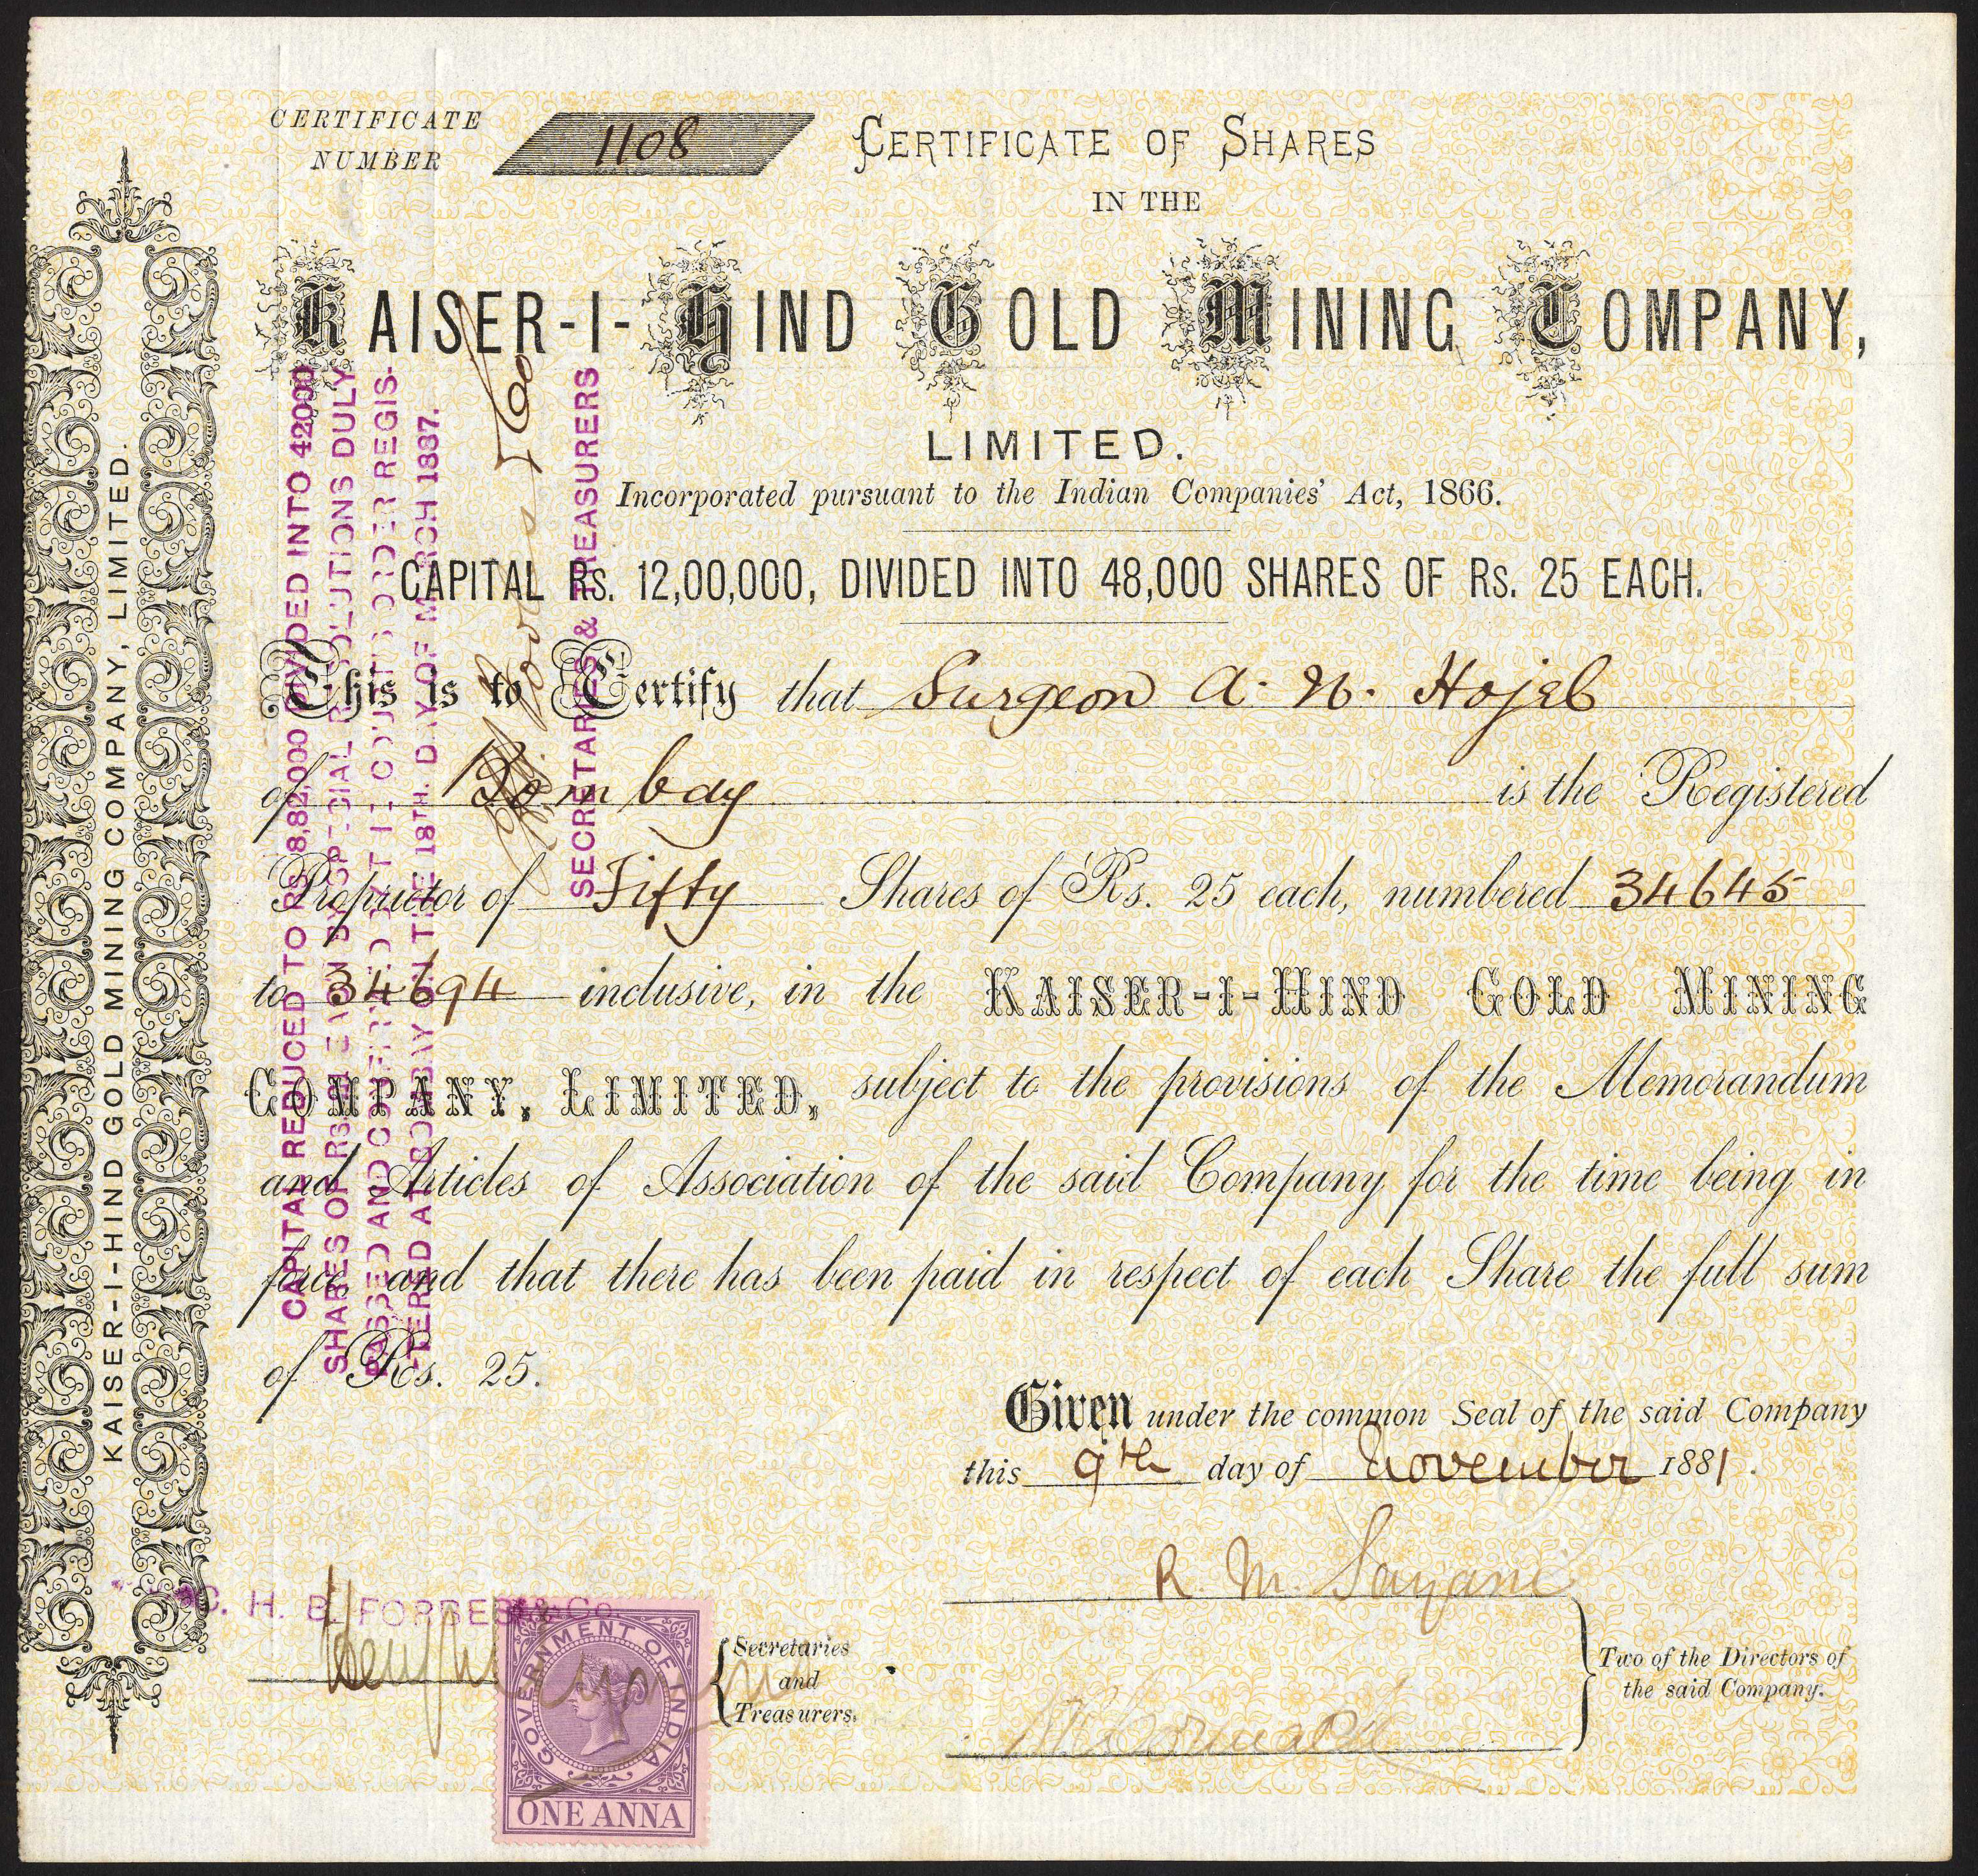 CERTIFICATE
NUMBER
1108
CERTIFICATE OF SHARES
IN THE
KAISER-I-HIND GOLD MINING COMPANY,
LIMITED.
Incorporated pursuant to the Indian Companies' Act, 1866.
CAPITAL Rs. 12,00,000, DIVIDED INTO 48,000 SHARES OF Rs. 25 EACH.
This is to Certify that Surgeon A. N. Hojel
of Bombay is the Registered
Proprietor of Fifty Shares of Rs. 25 each, numbered 34645
to 34694 inclusive, in the KAISER-I-HIND GOLD MINING
COMPANY, LIMITED, subject to the provisions of the Memorandum
and Articles of Association of the said Company for the time being in
force and that there has been paid in respect of each Share the full sum
of Rs. 25.
Given under the common Seal of the said Company
this 9th day of November 1881.
R. M. Sayani
Two of the Directors of
the said Company.
C. H. B. FORBES & Co.
Secretaries
and
Treasurers.
GOVERNMENT OF INDIA
ONE ANNA
KAISER-I-HIND GOLD MINING COMPANY, LIMITED.
CAPITAL REDUCED TO RS. 8,82,000 DIVIDED INTO 42000
SHARES OF RS. EACH BY SPECIAL RESOLUTIONS DULY
PASSED AND CONFIRMED BY THE COURTS ORDER REGIS-
TERED AT BOMBAY ON THE 18TH. DAY OF MARCH 1887.
SECRETARIES & TREASURERS